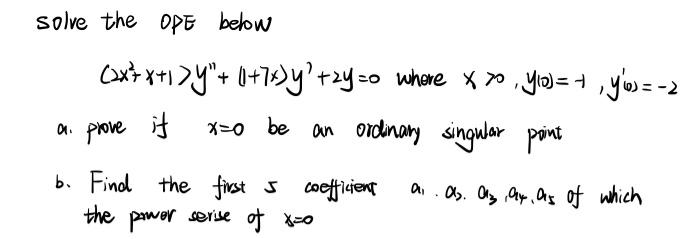 solve the ODE below
(2x²+x+1)y"+(1+7x)y'+2y=0 where x>0, y(0)=-1, y'(0)=-2
a. prove if x=0 be an ordinary singular point
b. Find the first 5 coefficient a₁. a₂. a₃, a₄, a₅ of which
the power serise of x=0